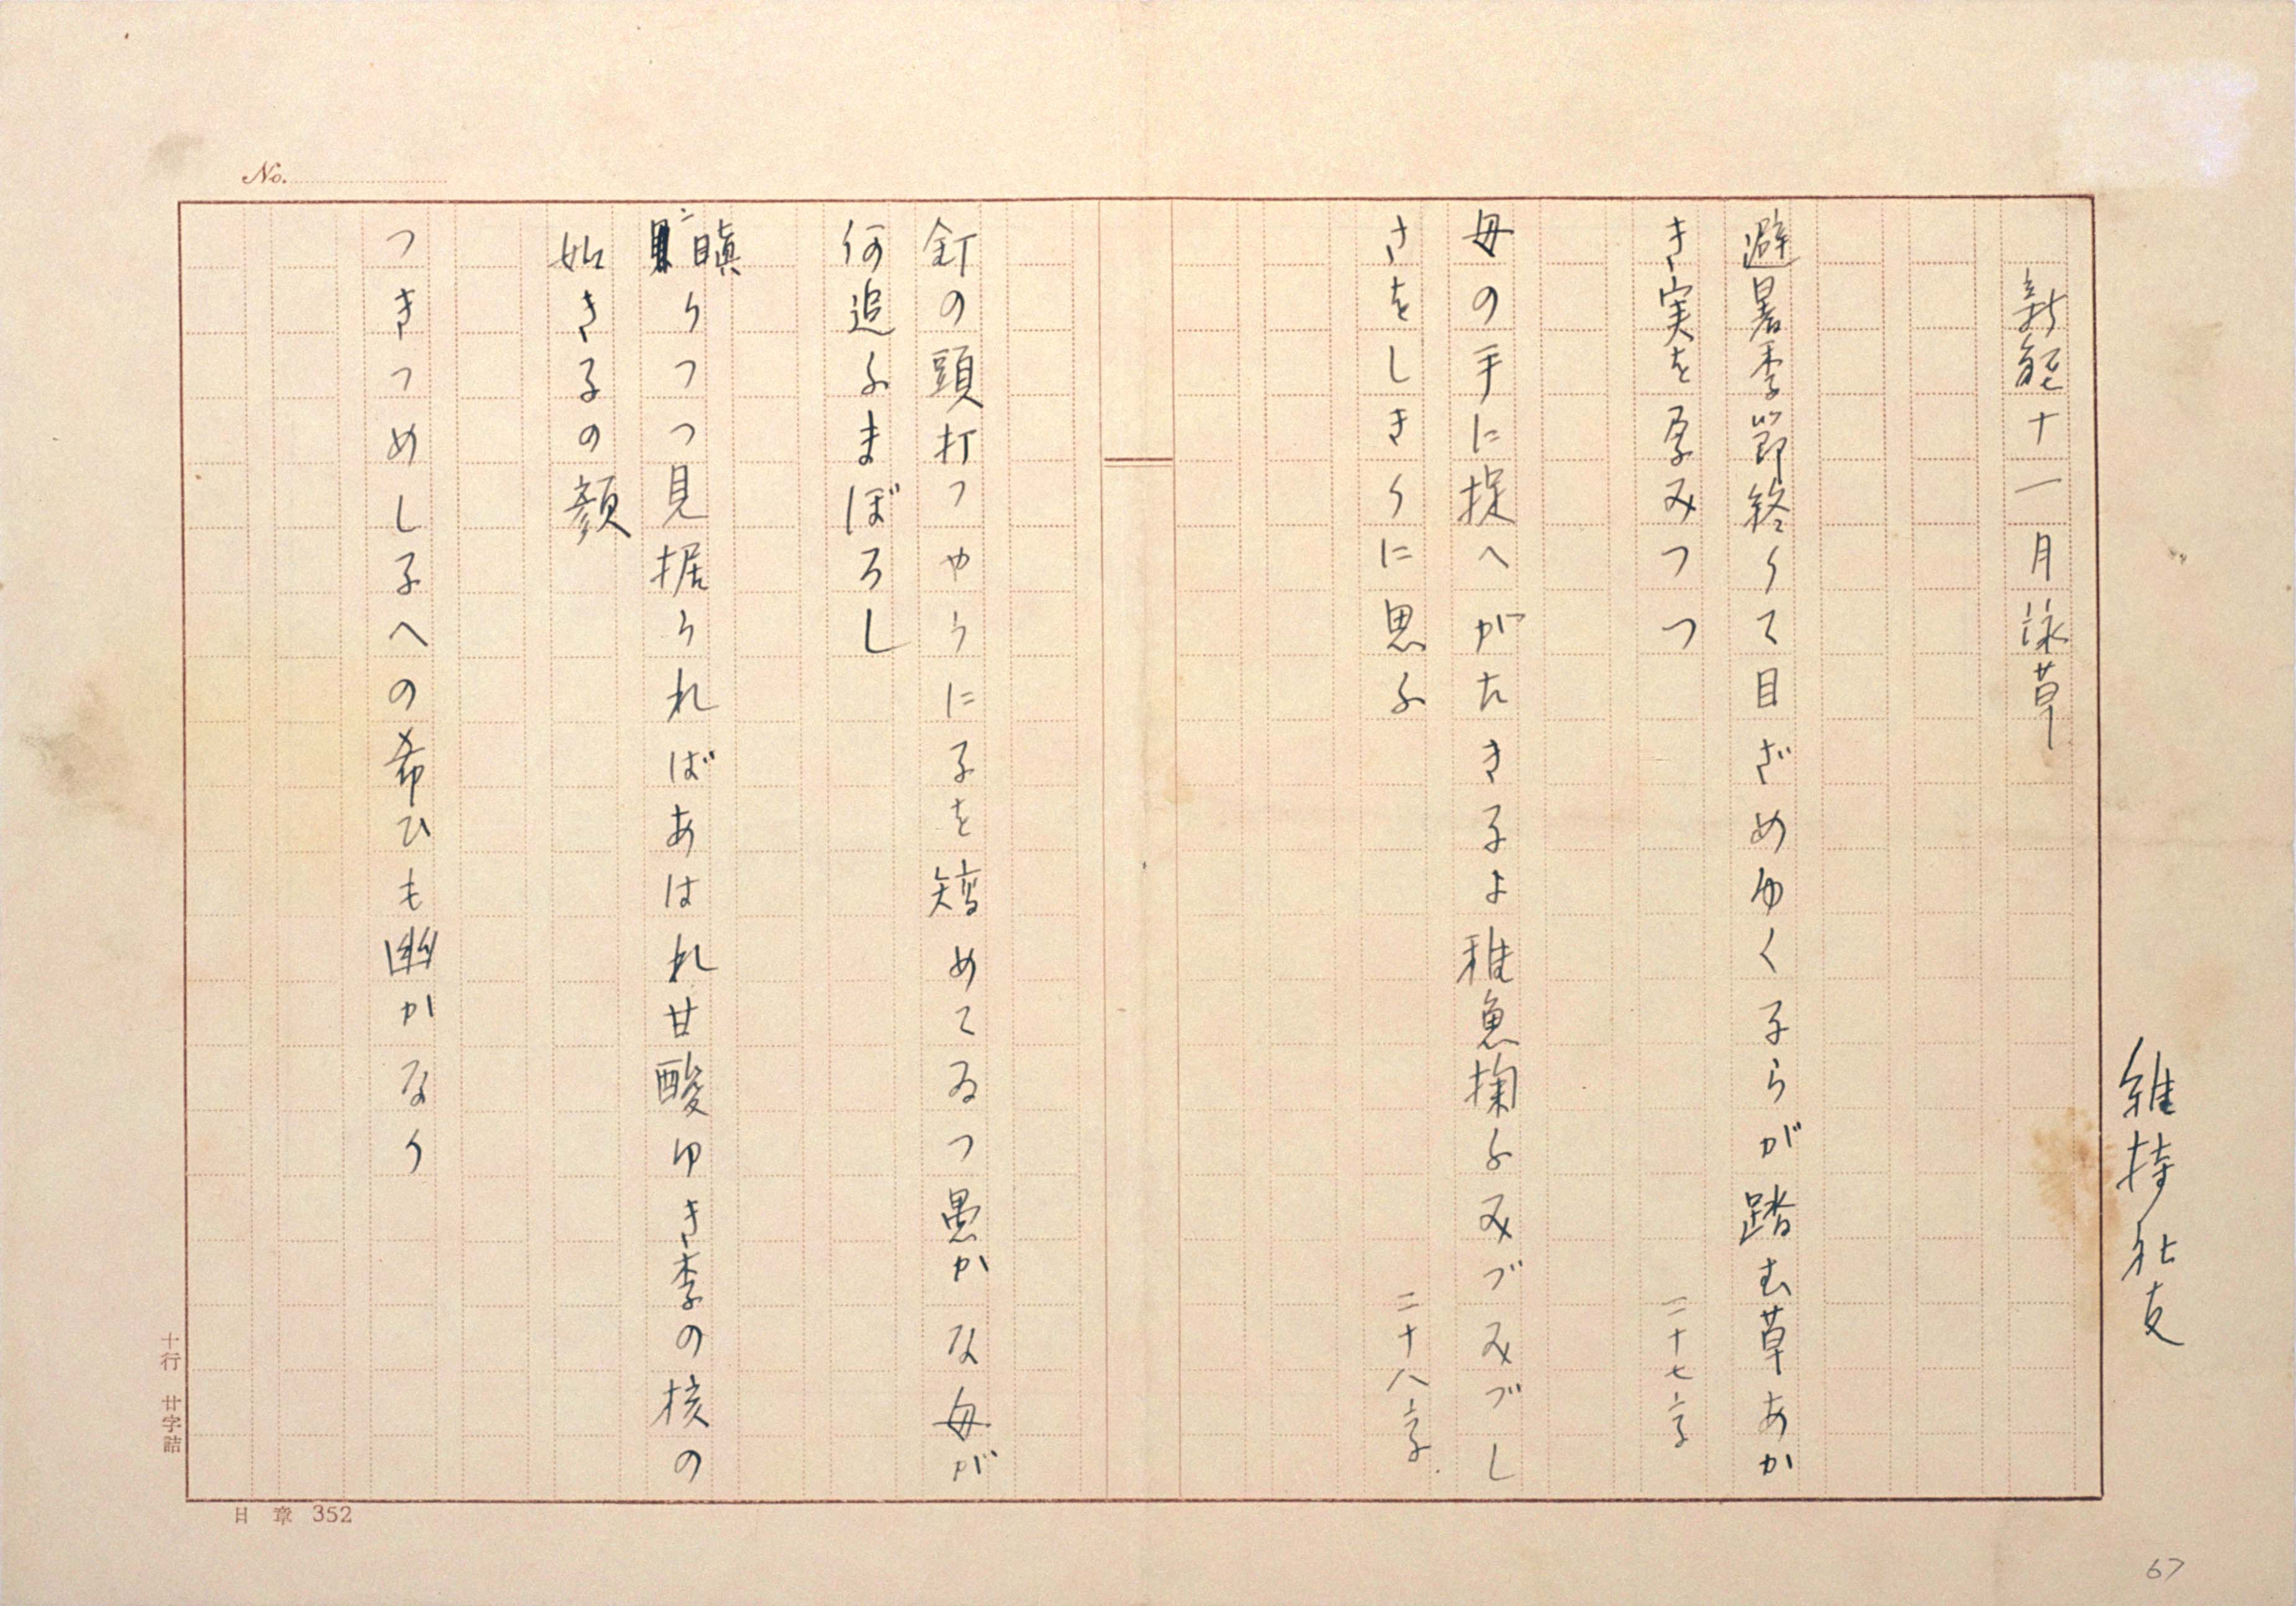 維持社友
新 十一月詠草
避暑季節終りて目ざめゆく子らが踏む草あか
き実を孕みつつ 二十七字
母の手に捉へがたき子よ稚魚掬ふみづみづし
さをしきりに思ふ 二十八字
釘の頭打つやうに子を矯めてゐつ愚かな母が
何追ふまぼろし
瞋りつつ見据うればあはれ甘酸ゆき李の核の
如き子の顔
つきつめし子への希ひも幽かなり
No.
十行 廿字詰
日章 352
67